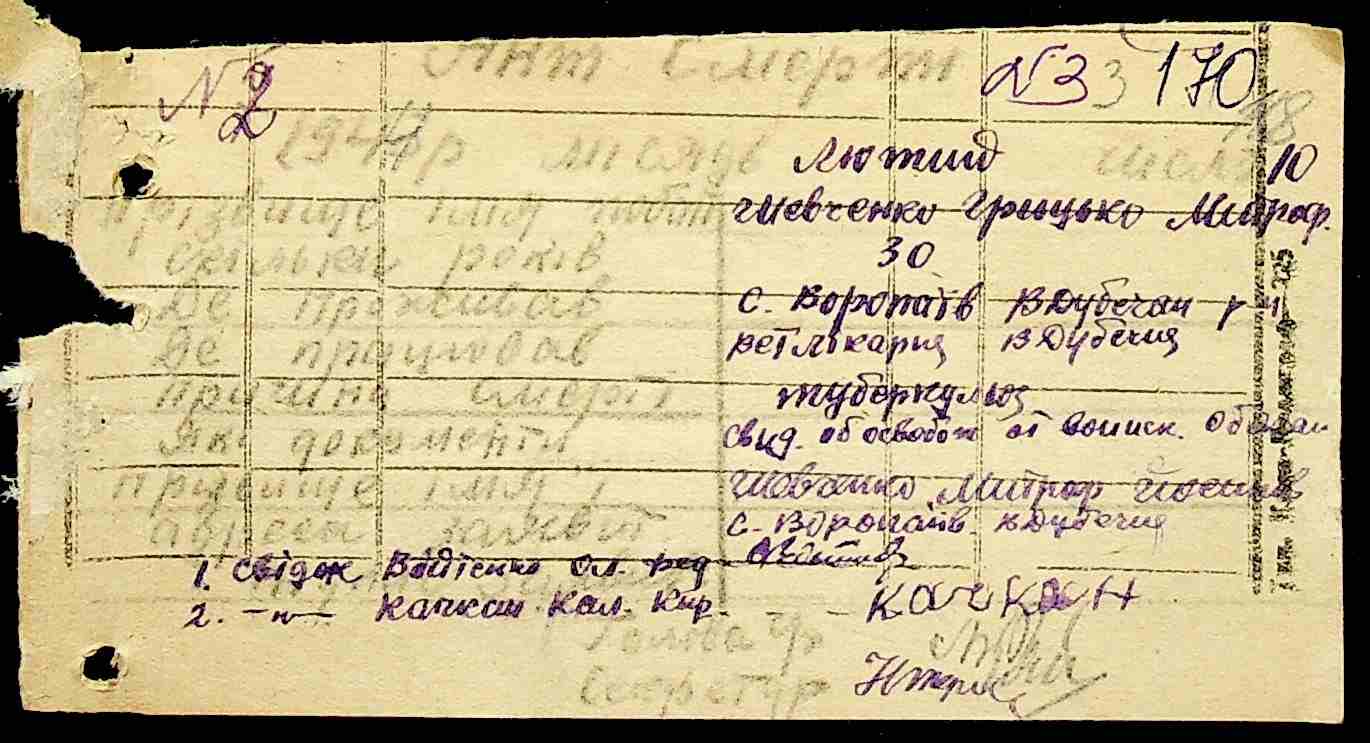 Акт Смерти
№ 2 № 3 3 170
194 р місяць Лютий число 10
Прізвище імя побат Шевченко Грицько Митроф.
Скільки років 30
Де проживав с. Воропаїв ВДубечан р н
Де працював ветлікарня ВДубечня
Причина Смерті туберкульоз
Які документи свид. об освобож от воинск. Обязан
Прізвище імя і Митроф
адреса заявит с. Воропаїв вДубечня
1. Свідок Ол. Фед
2. -"- Качкан Кал. Кир. Качкан
Голова
Секретар